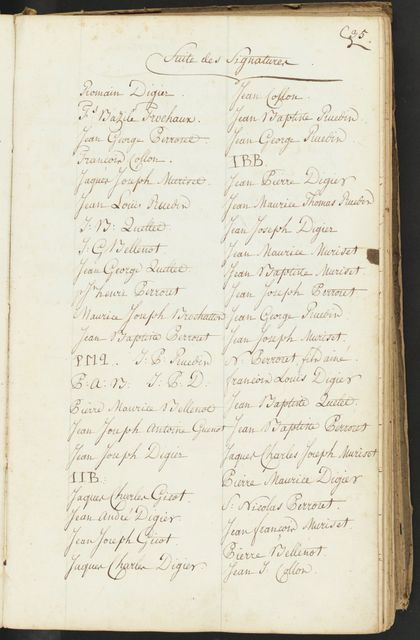 25.
Suite des Signatures
Romain Digier.
Fs Bazile Frochaux.
Jean George Perroset.
Francois Collon.
Jaques Joseph Muriset
Jean Louis Ruedin
J: B: Quellet
J. G. Bellenot
Jean George Quellet
Jn henri Perroset
Maurice Joseph Brochatton
Jean Baptiste Perroset
PMQ. J. B. Ruedin
P: A: B: J: P: D:
Pierre Maurice Bellenot
Jean Joseph Antoine Guenot
Jean Joseph Digier
IIB.
Jaques Charles Gicot
Jean André Digier
Jean Joseph Gicot
Jaques Charles Digier
Jean Collon.
Jean Baptiste Ruedin
Jean George Ruedin.
IBB.
Jean Pierre Digier
Jean Maurice Thomas Ruedin
Jean Joseph Digier
Jean Maurice Muriset
Jean Baptiste Muriset
Jean Joseph Perroset
Jean George Ruedin
Jean Joseph Muriset
N. Perroset fils ainé.
francois Louis Digier
Jean Baptiste Quellet
Jean Baptiste Perroset
Jaques Charles Joseph Muriset
Pierre Maurice Digier
S: Nicolas Perroset.
Jean francois Muriset
Pierre Bellenot
Jean J. Collon.